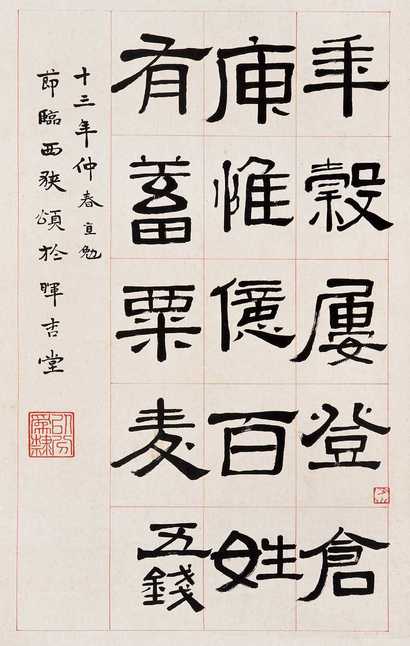 年穀屢登倉
庾惟億百姓
有蓄粟麦五錢
十三年仲春宣勉
節臨西狹頌於暉吉堂